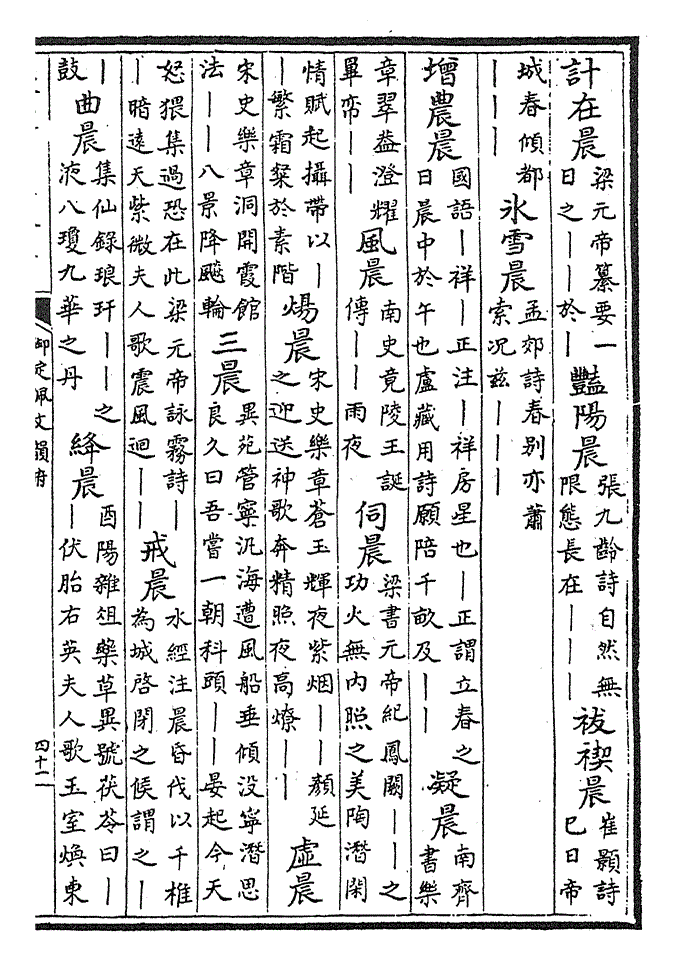 計在晨 梁元帝纂要一日之丨丨於丨 豔陽晨 張九齡詩自然無限態長在丨丨丨 祓禊晨 崔顥詩巳日帝
城春傾都丨丨丨 氷雪晨 孟郊詩春别亦蕭索况兹丨丨丨
增農晨 國語丨祥丨正注丨祥房星也丨正謂立春之日晨中於午也盧藏用詩願陪千畝及丨丨 凝晨 南齊書樂
章翠葢澄耀罼帟丨丨 風晨 南史竟陵王誕傳丨丨雨夜 伺晨 梁書元帝紀鳳闕丨丨之功火無内照之美陶潛閑
情賦起攝帶以丨丨繁霜粲於素階 煬晨 宋史樂章蒼玉輝夜紫烟丨丨顔延之迎送神歌奔精照夜高燎丨丨 虛晨
宋史樂章洞開霞館法丨丨八景降飈輪 三晨 異苑管寧汎海遭風船垂傾没寧潛思良久曰吾嘗一朝科頭丨丨晏起今天
怒猥集過恐在此梁元帝詠霧詩丨丨暗遠天紫微夫人歌震風迴丨丨 戒晨 水經注晨昏伐以千椎為城啓閉之候謂之丨
丨鼓 曲晨 集仙錄琅玕丨丨之液八瓊九華之丹 絳晨 酉陽雜俎藥草異號茯苓曰丨丨伏胎右英夫人歌玉室煥東
御定佩文韻府
四十二